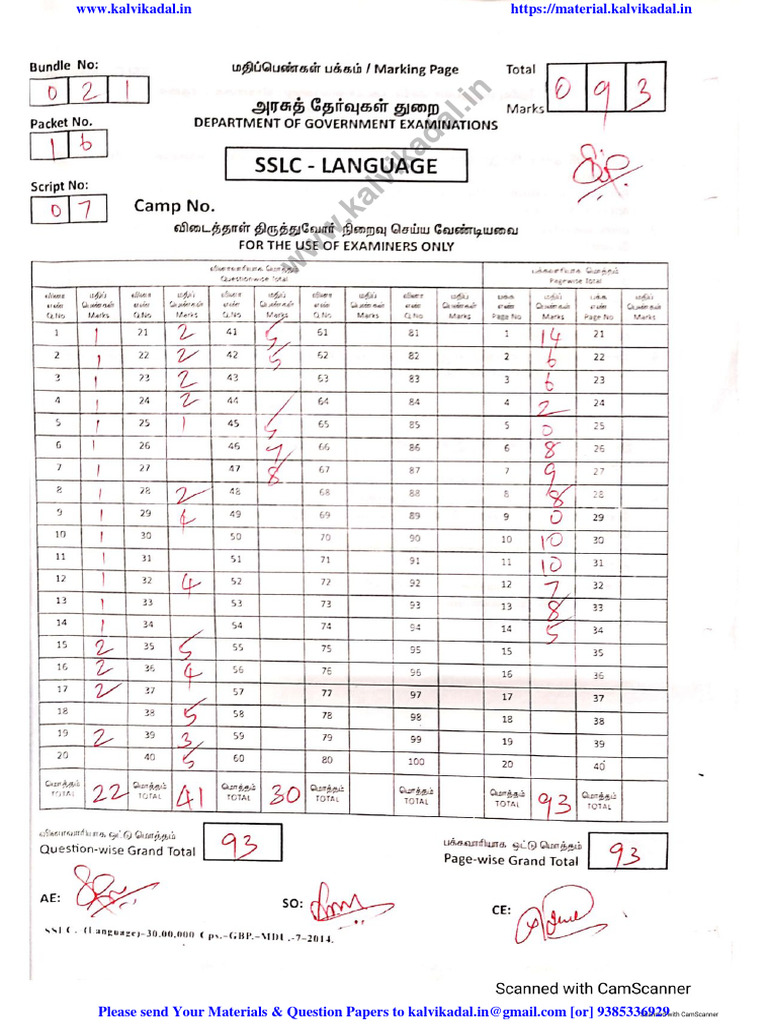 www.kalvikadal.in https://material.kalvikadal.in
Bundle No: மதிப்பெண்கள் பக்கம் / Marking Page Total
0 2 1 Marks 0 9 3
அரசுத் தேர்வுகள் துறை
Packet No. DEPARTMENT OF GOVERNMENT EXAMINATIONS
1 6 SSLC - LANGUAGE
Script No:
0 7 Camp No.
விடைத்தாள் திருத்துவோர் நிறைவு செய்ய வேண்டியவை
FOR THE USE OF EXAMINERS ONLY
www.kalvikadal.in
வினாவாரியாக மொத்தம் பக்கவாரியாக மொத்தம்
Question-wise Total Pagewise Total
வினா மதிப் வினா மதிப் வினா மதிப் வினா மதிப் பக்க மதிப் பக்க மதிப்
எண் பெண்கள் எண் பெண்கள் எண் பெண்கள் எண் பெண்கள் எண் பெண்கள் எண் பெண்கள்
Q.No Marks Q.No Marks Q.No Marks Q.No Marks Page No Marks Page No Marks
1 1 21 2 41 5 61 81 1 14 21
2 1 22 2 42 5 62 82 2 6 22
3 1 23 2 43 63 83 3 6 23
4 1 24 2 44 64 84 4 2 24
5 1 25 1 45 5 65 85 5 0 25
6 1 26 46 7 66 86 6 8 26
7 1 27 47 8 67 87 7 9 27
8 1 28 2 48 68 88 8 8 28
9 1 29 4 49 69 89 9 0 29
10 1 30 50 70 90 10 10 30
11 1 31 51 71 91 11 10 31
12 1 32 4 52 72 92 12 7 32
13 1 33 53 73 93 13 8 33
14 1 34 54 74 94 14 5 34
15 2 35 5 55 75 95 15 35
16 2 36 4 56 76 96 16 36
17 2 37 57 77 97 17 37
18 38 5 58 78 98 18 38
19 2 39 3 59 79 99 19 39
20 40 5 60 80 100 20 40
மொத்தம் மொத்தம் மொத்தம் மொத்தம் மொத்தம் மொத்தம் மொத்தம்
TOTAL 22 TOTAL 41 TOTAL 30 TOTAL TOTAL TOTAL 93 TOTAL
வினாவாரியாக ஒட்டு மொத்தம் பக்கவாரியாக ஒட்டு மொத்தம்
Question-wise Grand Total 93 Page-wise Grand Total 93
AE: SO: CE:
SSLC. (Language)-30,00,000 Cps.-GBP.-MDU.-7-2014.
Scanned with CamScanner
Please send Your Materials & Question Papers to kalvikadal.in@gmail.com [or] 9385336929